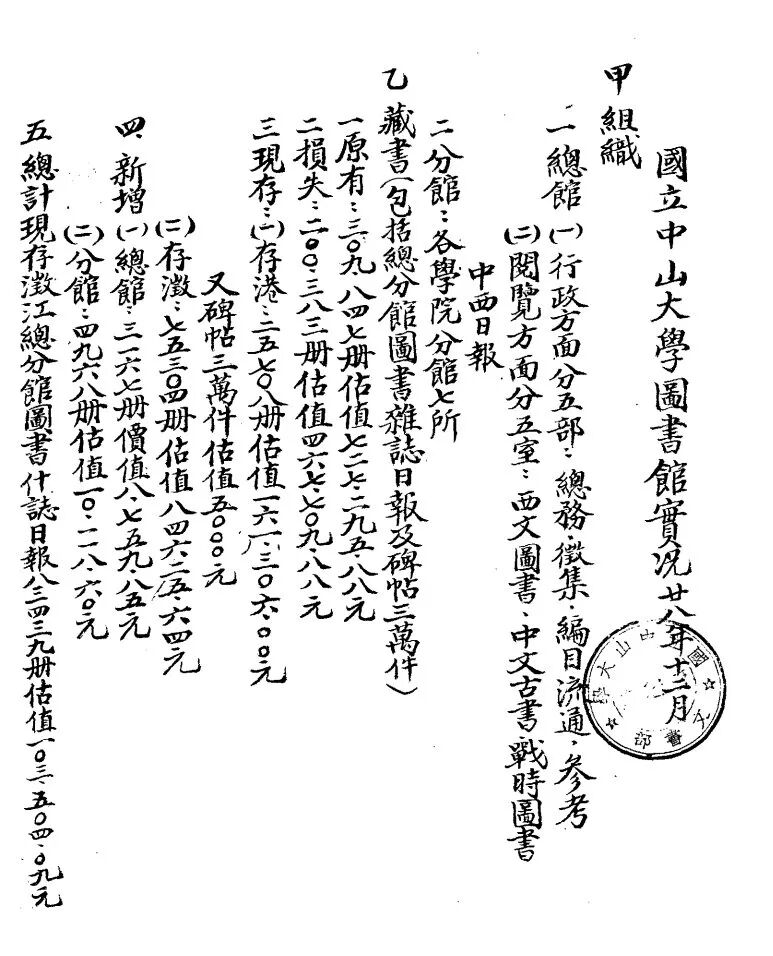 國立中山大學圖書館實况廿八年十二月
甲組織
一總館(一)行政方面分五部：總務、徵集、編目流通、參考
(二)閱覽方面分五室：西文圖書、中文古書、戰時圖書
中西日報
二分館：各學院分館七所
乙藏書(包括總分館圖書雜誌日報及碑帖三萬件)
一原有：三〇九、八四七册估值七二七、二九五、八八元
二損失：二〇〇、三八三册估值四六七、七〇九、八八元
三現存：(一)存港：二五七〇八册估值一六一、三〇六、〇〇元
又碑帖三萬件估值五〇〇〇元
(二)存澂：七五三〇四册估值八四六二五、六四元
四、新增(一)總館：三一六七册價值八、七五九、八五元
(二)分館：四九六八册估值一〇、一一八、六〇元
五總計現存澂江總分館圖書什誌日報八三四三九册估值一〇三、五〇四、〇九元